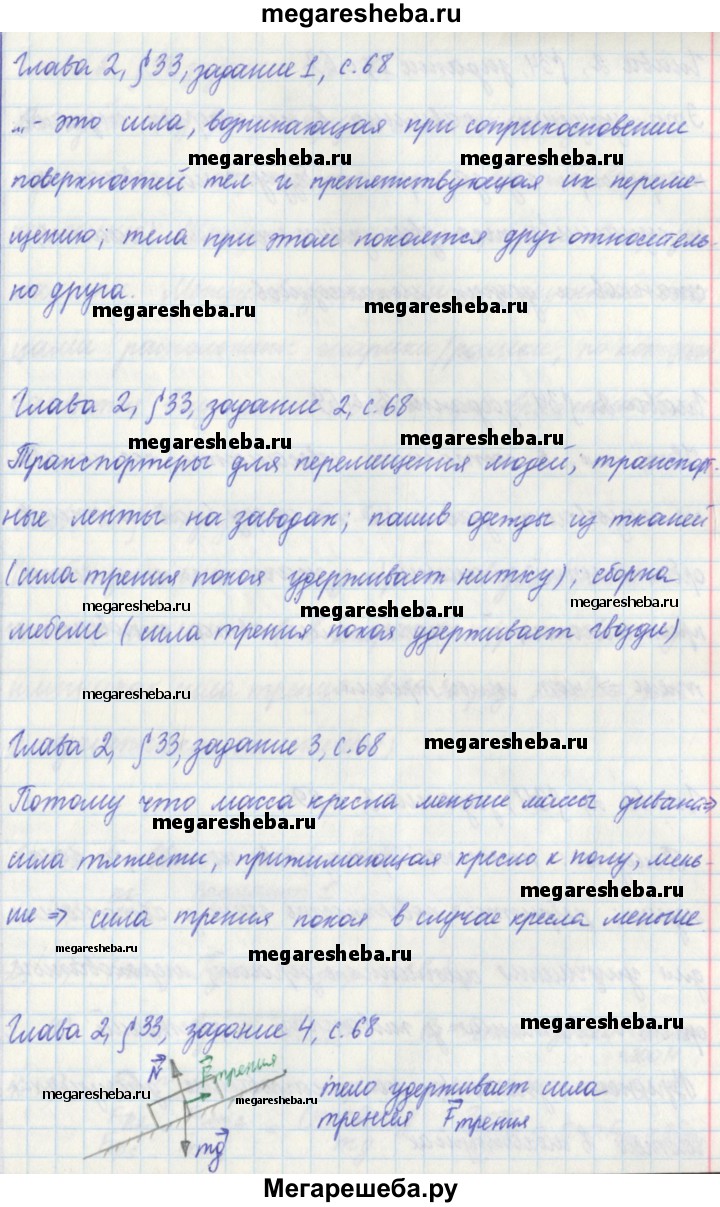 megaresheba.ru
Глава 2, §33, задание 1, с.68
...- это сила, возникающая при соприкосновении
megaresheba.ru megaresheba.ru
поверхностей тел и препятствующая их переме-
щению; тела при этом покоятся друг относитель-
но друга.
megaresheba.ru megaresheba.ru
Глава 2, §33, задание 2, с.68
megaresheba.ru megaresheba.ru
Транспортеры для перемещения людей, транспорт-
ные ленты на заводах; пошив одежды из тканей
(сила трения покоя удерживает нитку); сборка
megaresheba.ru megaresheba.ru megaresheba.ru
мебели (сила трения покоя удерживает гвозди)
megaresheba.ru
Глава 2, §33, задание 3, с.68
megaresheba.ru
Потому что масса кресла меньше массы дивана=>
megaresheba.ru
сила тяжести, прижимающая кресло к полу, мень-
megaresheba.ru
ше => сила трения покоя в случае кресла меньше
megaresheba.ru megaresheba.ru
Глава 2, §33, задание 4, с.68
megaresheba.ru
N F трения
megaresheba.ru megaresheba.ru megaresheba.ru
тело удерживает сила
трения F трения
mg
Мегарешеба.ру